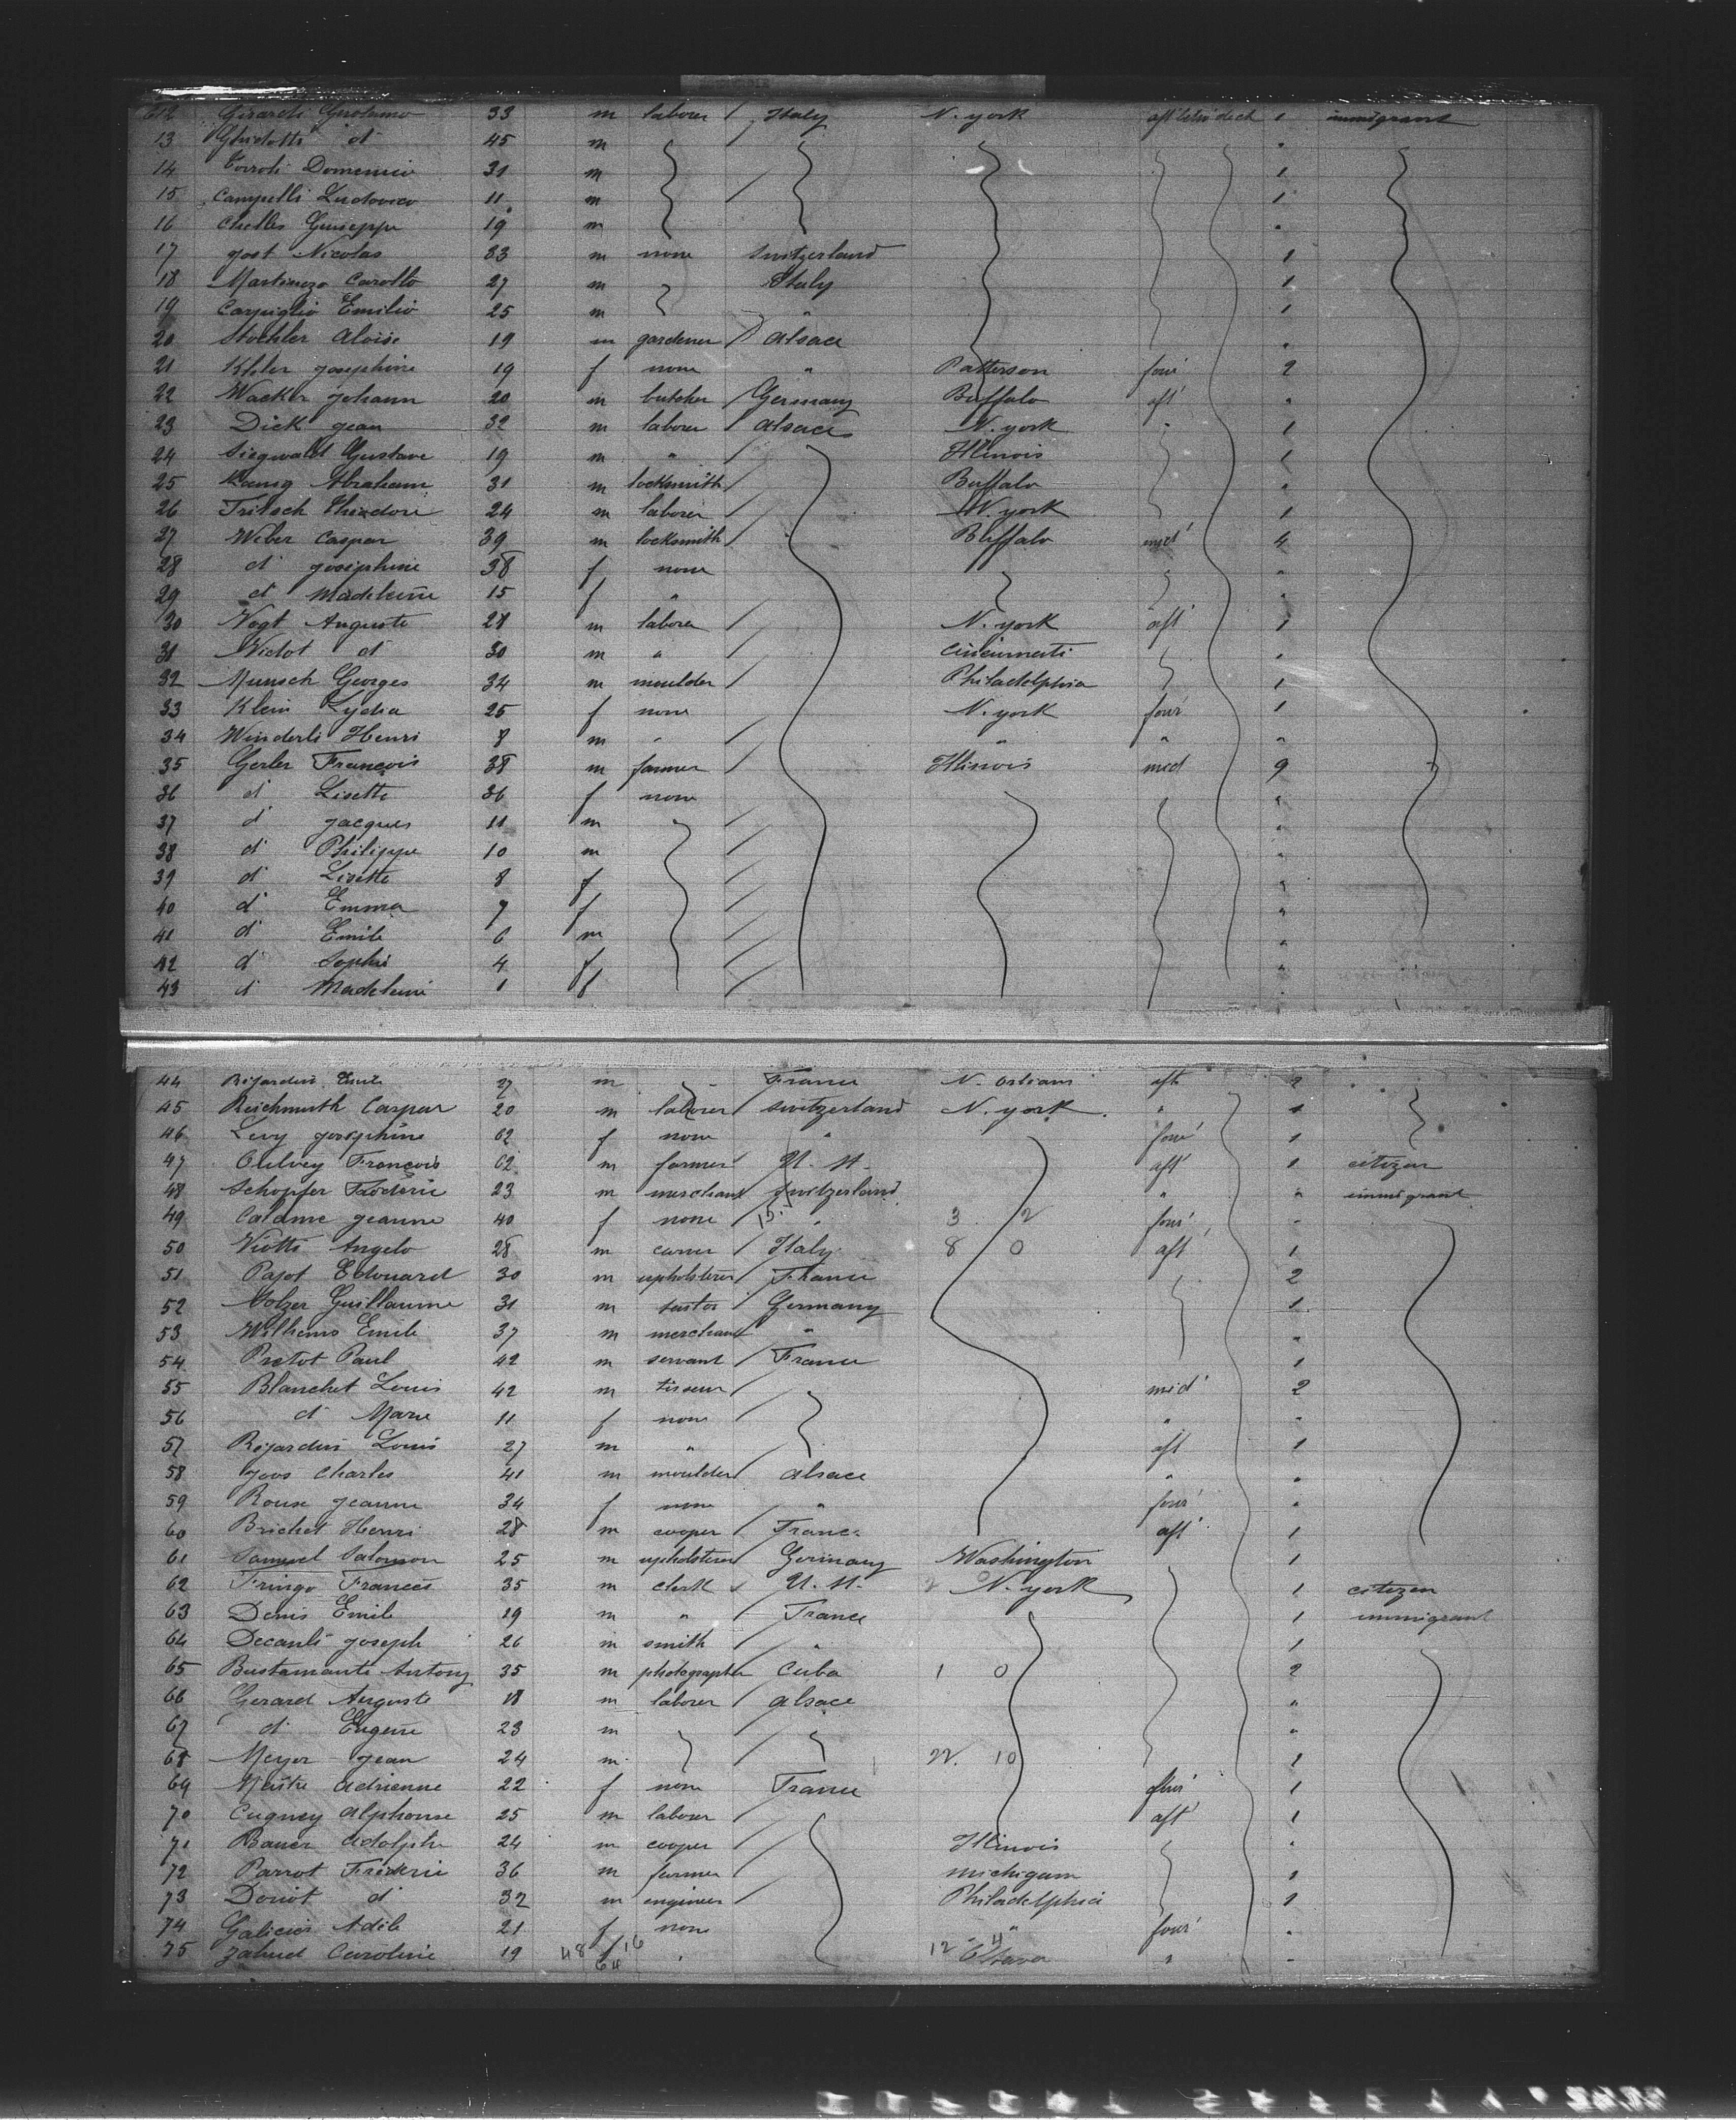 612 Girardi Girolamo 33 m laborer / Italy N. york aft 1 immigrant
13 Ghidotti d 45 m "
14 Domenico 31 m 1
15 Campelli Ludovico 11 m / 1
16 Giuseppe 19 m "
17 jost Nicolas 33 m none Switzerland 1
18 Martinozo Carollo 27 m Italy 1
19 Emilio 25 m " 1
20 Aloise 19 m gardener / Alsace "
21 josephine 19 f none " Patterson four' 2
22 Wacker johann 20 m butcher / Germany Buffalo aft' "
23 Dick jean 32 m laborer / Alsace N. york " 1
24 Siegwald Gustave 19 m " / Illinois 1
25 Abraham 31 m locksmith / Buffalo "
26 Fritsch Theodore 24 m laborer / N. york 1
27 Weber Caspar 39 m locksmith / Buffalo mid' 4
28 d josephine 38 f none "
29 d Madeleine 15 f " "
30 Vogt Auguste 28 m laborer / N. york aft' 1
31 Nidot d 30 m " / Cincinnati "
32 Munsch Georges 34 m moulder / Philadelphia 1
33 Klein Lydia 25 f none N. york four' 1
34 Winderli Henri 8 m " / " " "
35 Gerler François 38 m farmer / Illinois mid 9
36 d Lisette 36 f none "
37 d jacques 11 m / "
38 d Philippe 10 m / "
39 d Lisette 8 f / "
40 d Emma 7 f / "
41 d Emile 6 m / "
42 d Sophie 4 f / "
43 d Madeleine 1 f / "
44 Bijardin Emile 27 m " France N. Orleans aft 2
45 Reichmuth Caspar 20 m laborer / Switzerland N. york. " 1
46 Levy josephine 62 f none " four' 1
47 François 62 m farmer U. St. aft' 1 citizen
48 Schopfer Frederic 23 m merchant / Switzerland " " immigrant
49 Calame jeanne 40 f none / 15. " 3 2 four' "
50 Viotti Angelo 28 m carver / Italy 8 0 aft' 1
51 Pajot Edouard 30 m upholsterer / France 2
52 Volzer Guillaume 31 m / Germany 1
53 Wilhems Emile 37 m merchant " "
54 Pretot Paul 42 m servant / France 1
55 Blanchet Louis 42 m tisseur / mid' 2
56 d Marie 11 f none / " "
57 Bijardin Louis 27 m " / aft 1
58 joos Charles 41 m moulder / Alsace " "
59 Roux jeanne 34 f none " four' "
60 Brichet Henri 28 m cooper / France aft' 1
61 Samuel Salomon 25 m upholsterer Germany Washington 1
62 Fringo Frances 35 m clerk x U. St. 2 0 N. york 1 citizen
63 Denis Emile 19 m " / France 1 immigrant
64 joseph 26 m smith / " 1
65 Bustamante Antony 35 m photographer Cuba 1 0 2
66 Gerard Auguste 18 m laborer / Alsace "
67 d Eugene 23 m / "
68 Meyer jean 24 m / 22. 10 1
69 Maitre Adrienne 22 f none France four' 1
70 Cugney Alphonse 25 m laborer / aft' 1
71 Bauer Adolphe 24 m cooper / Illinois "
72 Parrot Frederic 36 m farmer / michigan 1
73 Doriot d 32 m engineer / Philadelphia 1
74 Adele 21 f none " four' "
75 Caroline 19 48 f 16 64 " 12 4 " "